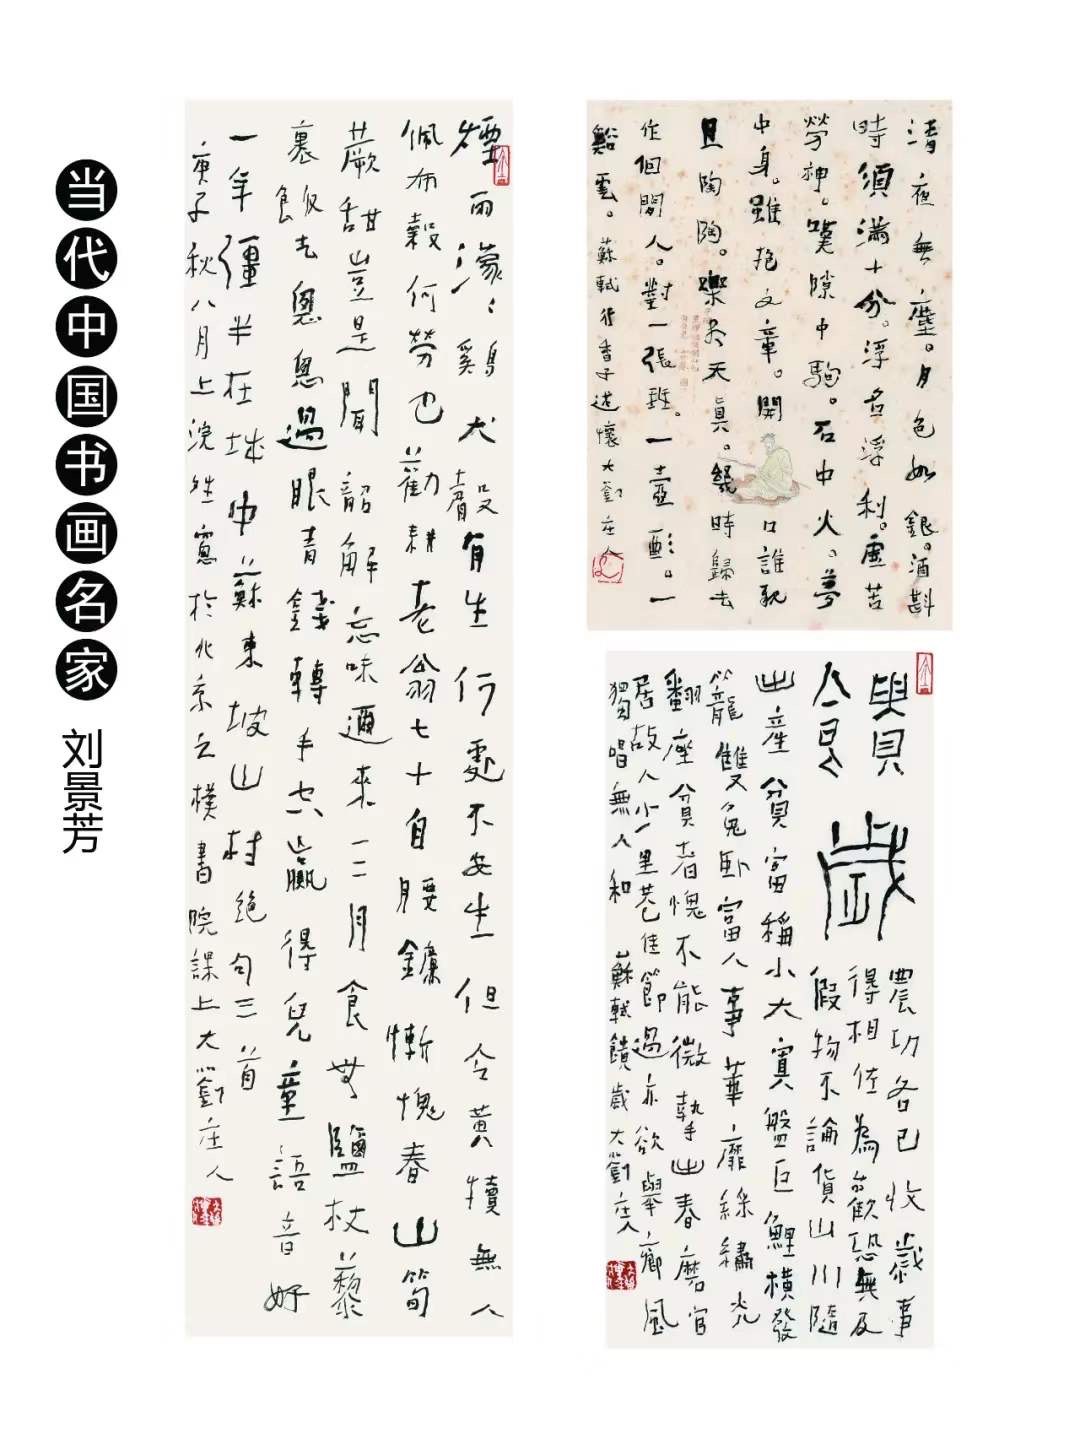 当代中国书画名家
刘景芳
煙雨濛々鷄犬聲有生何處不安生但令黃犢無人
佩布穀何勞也勸耕老翁七十自腰鐮慚愧春山筍
蕨甜豈是聞韶解忘味邇來三月食無鹽杖藜
裹飯去匆匆過眼青錢轉手空贏得兒童語音好
一年彊半在城中蘇東坡山村絕句三首
庚子秋八月上浣於北京之樸書院課上大劉庄人
清夜無塵。月色如銀。酒斟
時須滿十分。浮名浮利。虛苦
勞神。嘆隙中駒。石中火。夢
中身。雖抱文章。開口誰親
且陶陶。樂盡天真。幾時歸去
作個閒人。對一張琴。一壺酒。一
谿雲。蘇軾行香子述懷大劉庄人
饋歲
農功各已收歲事
得相佐為歡恐無及
假物不論貨山川隨
出產貧富稱小大寘盤巨鯉橫發
籠雙兔臥富人事華靡綵繡光
翻座貧者愧不能微摯出春磨官
居故人少里巷佳節過亦欲舉鄉風
獨唱無人和蘇軾饋歲大劉庄人